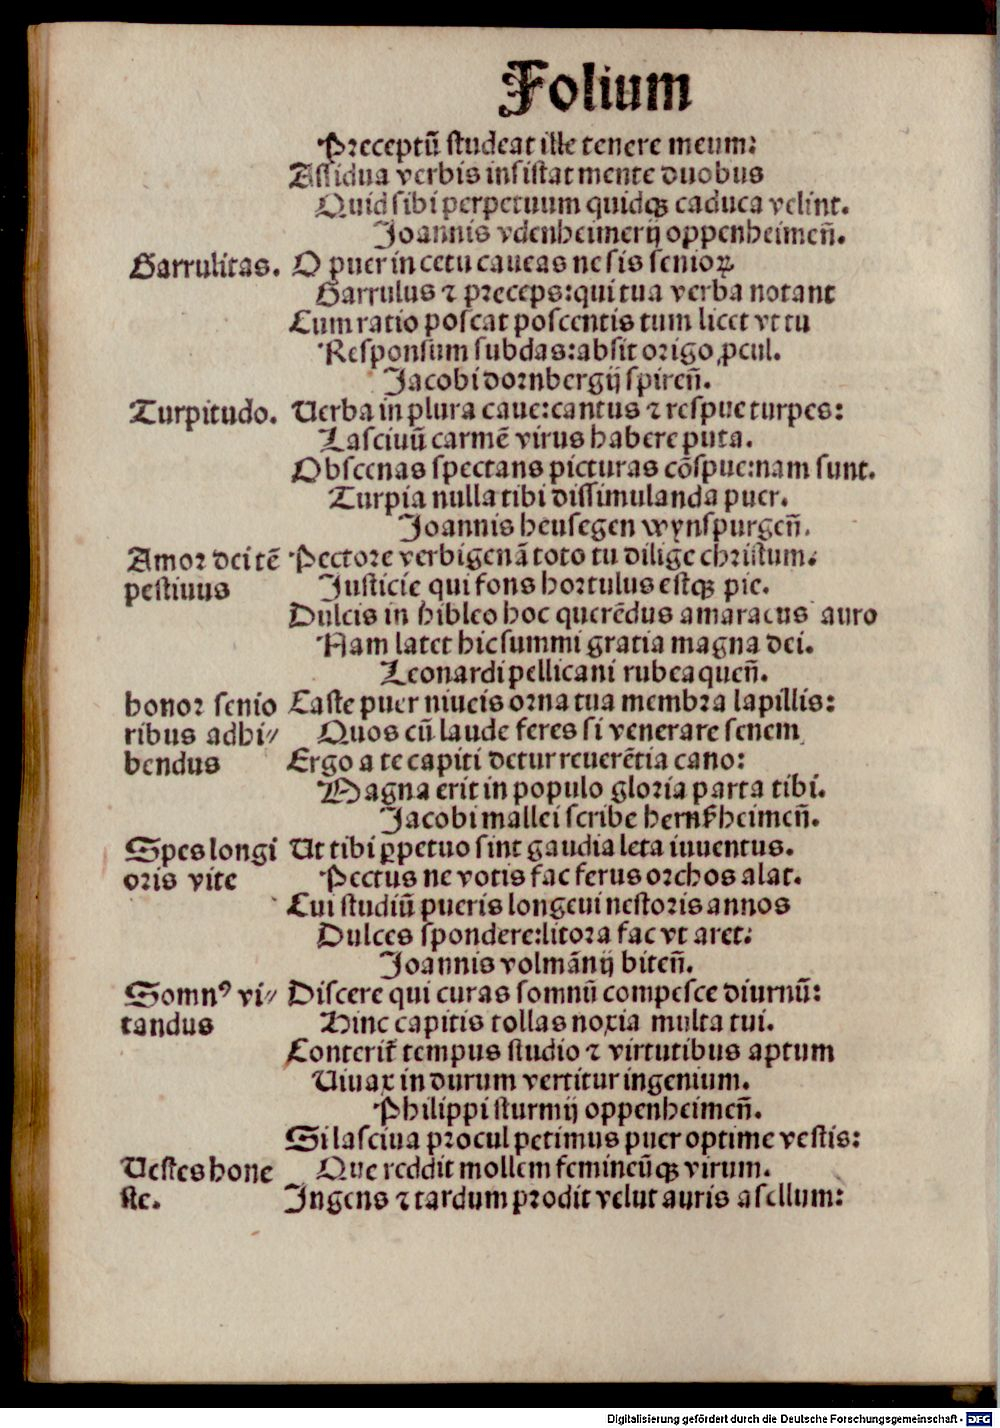 Folium
Preceptū studeat ille tenere meum:
Assidua verbis insistat mente duobus
Quid sibi perpetuum quidqꝫ caduca velint.
Joannis vdenheimerij oppenheimeñ.
Garrulitas. O puer in cetu caueas ne sis senioꝝ
Garrulus ⁊ preceps: qui tua verba notant
Cum ratio poscat poscentis tum licet vt tu
Responsum subdas: absit origo ꝓcul.
Jacobi dornbergij spireñ.
Turpitudo. Verba in plura caue: cantus ⁊ respue turpes:
Lasciuū carmē virus habere puta.
Obscenas spectans picturas cōspue: nam sunt.
Turpia nulla tibi dissimulanda puer.
Joannis heusegen wynspurgeñ.
Amor dei tē Pectore verbigenā toto tu dilige christum:
pestiuus Justicie qui fons hortulus estqꝫ pie.
Dulcis in hibleo hoc querēdus amaracus auro
Nam latet hic summi gratia magna dei.
Leonardi pellicani rubeaqueñ.
honor senio Caste puer niueis orna tua membra lapillis:
ribus adhi⸗ Quos cū laude feres si venerare senem
bendus Ergo a te capiti detur reuerētia cano:
Magna erit in populo gloria parta tibi.
Jacobi mallei scribe hernkheimeñ.
Spes longi Ut tibi ꝑpetuo sint gaudia leta iuuentus.
oris vite Pectus ne votis fac ferus orchos alat.
Cui studiū pueris longeui nestoris annos
Dulces spondere: litora fac vt aret:
Joannis volmānij biteñ.
Somnꝰ vi⸗ Discere qui curas somnū compesce diurnū:
tandus Hinc capitis tollas noxia multa tui.
Conterit̃ tempus studio ⁊ virtutibus aptum
Viuax in durum vertitur ingenium.
Philippi sturmij oppenheimeñ.
Si lasciua procul petimus puer optime vestis:
Vestes hone Que reddit mollem femineūqꝫ virum.
ste. Ingens ⁊ tardum prodit velut auris asellum:
Digitalisierung gefördert durch die Deutsche Forschungsgemeinschaft - DFG